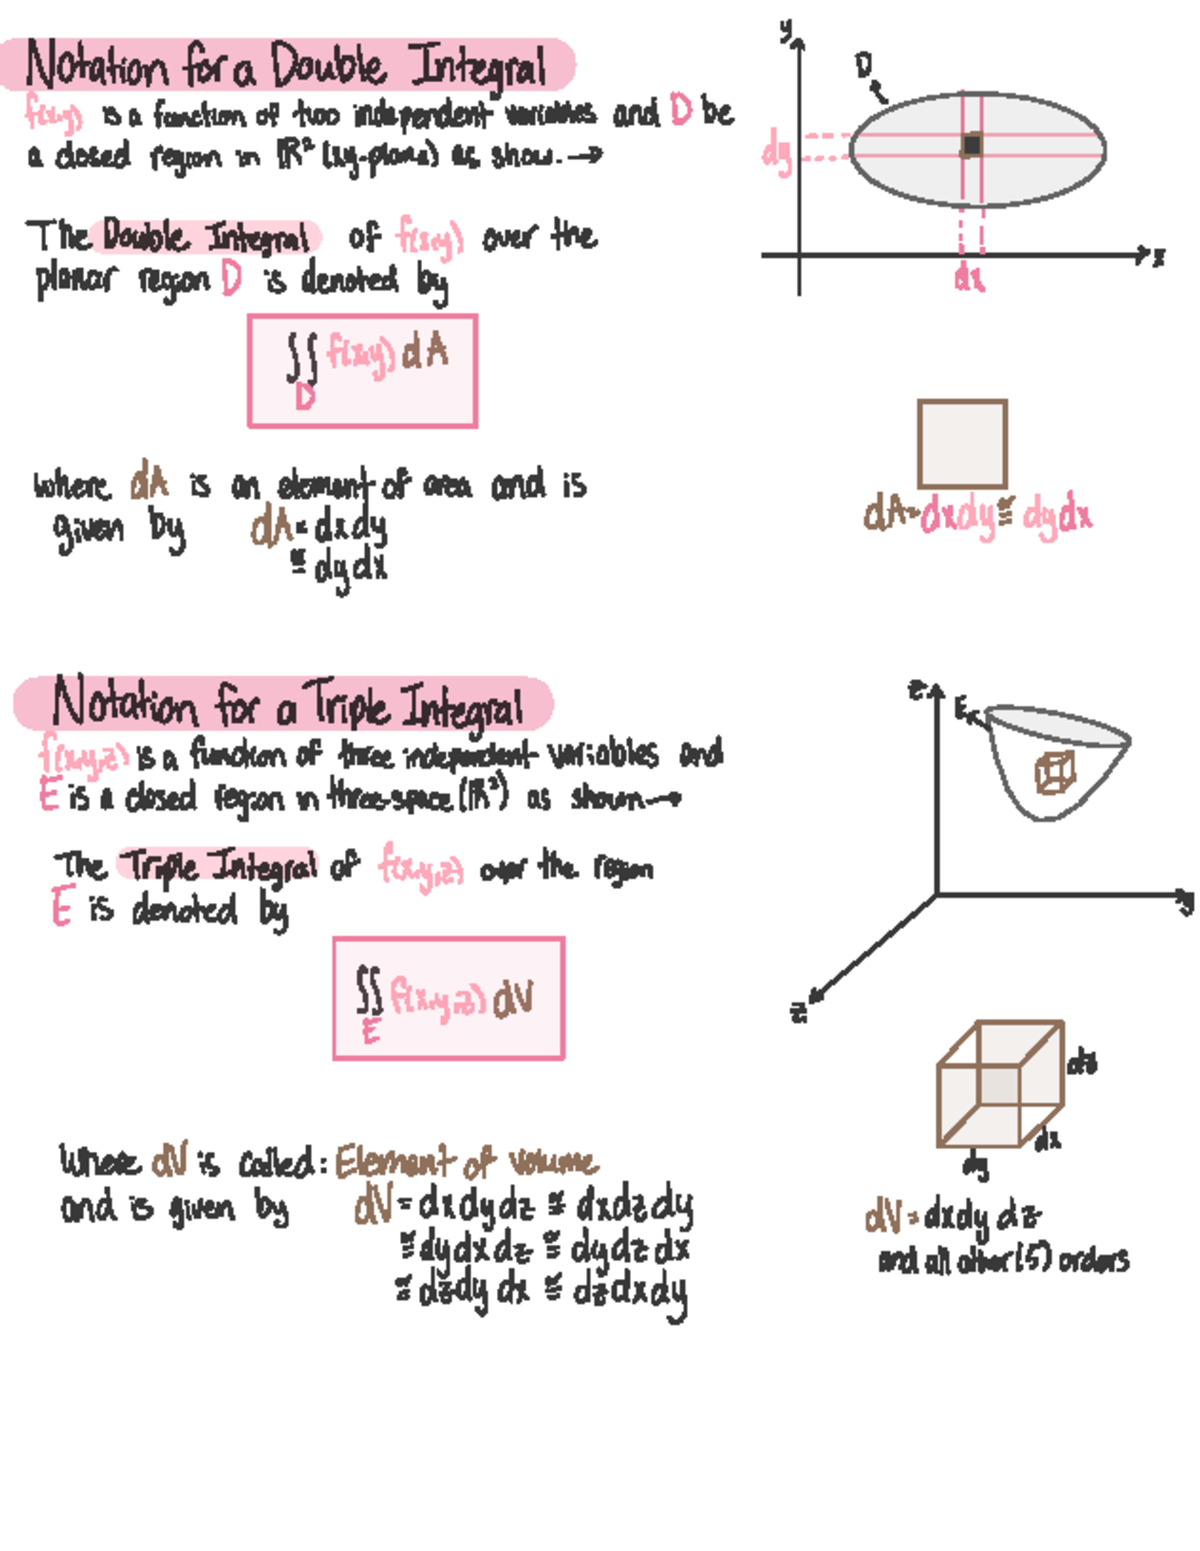 Notation for a Double Integral
f(x,y) is a function of two independent variables and D be
a closed region in ℝ² (xy-plane) as show. →
The Double Integral of f(x,y) over the
planar region D is denoted by
∬ f(x,y) dA
D
Where dA is an element of area and is
given by dA = dxdy
≅ dydx
y
D
dy
x
dx
dA = dxdy ≅ dydx
Notation for a Triple Integral
f(x,y,z) is a function of three independent variables and
E is a closed region in three-space (ℝ³) as shown →
The Triple Integral of f(x,y,z) over the region
E is denoted by
∬ f(x,y,z) dV
E
Where dV is called: Element of volume
and is given by dV = dxdydz ≅ dxdzdy
≅ dydxdz ≅ dydzdx
≅ dzdydx ≅ dzdxdy
z
E
y
z
dz
dx
dy
dV = dxdy dz
and all other (5) orders